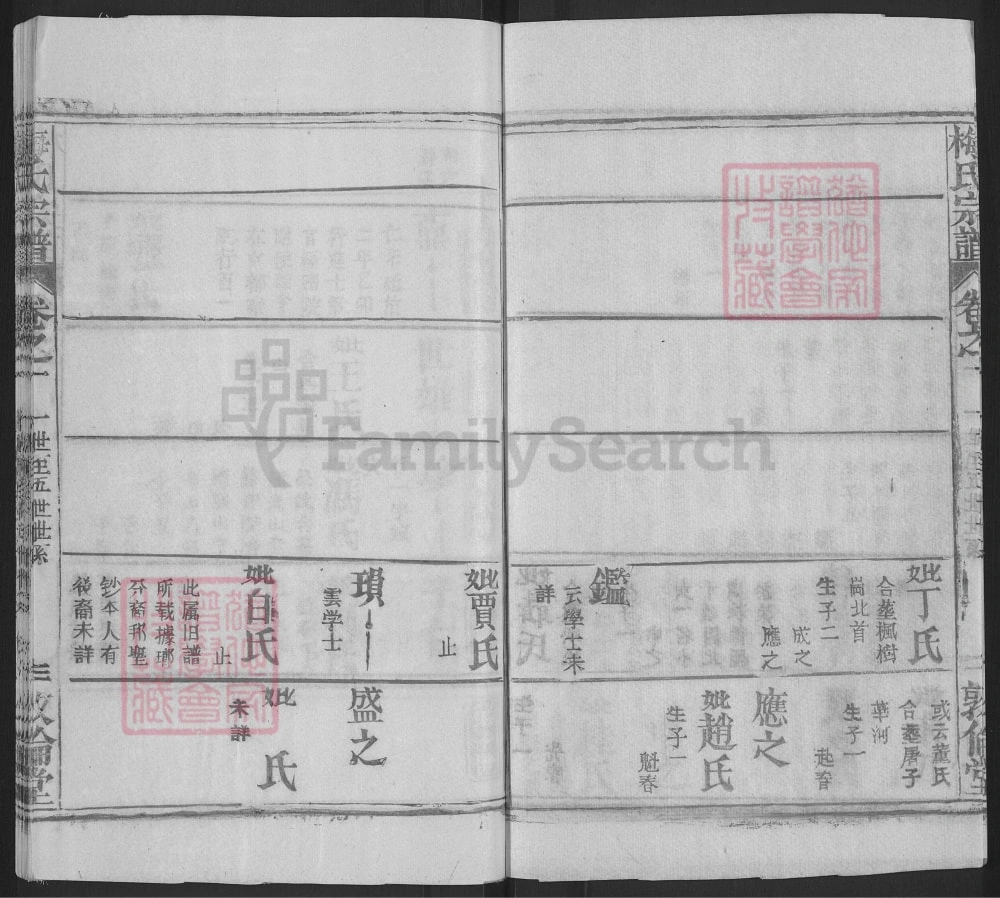 梅氏宗譜
卷之一
一世至五世世系
敦倫堂
妣丁氏
合塟楓樹
崗北首
生子二
成之
應之
鑑
云學士未
詳
或云董氏
合塟屠子
華河
生子一
起春
應之
妣趙氏
生子一
魁春
妣賈氏
止
瑣
雲学士
妣白氏
止
此属旧譜
所載據瑯
鈔本人有
後裔未詳
盛之
妣 氏
未詳
梅氏宗譜
卷之一
一世至五世世系
三
敦倫堂